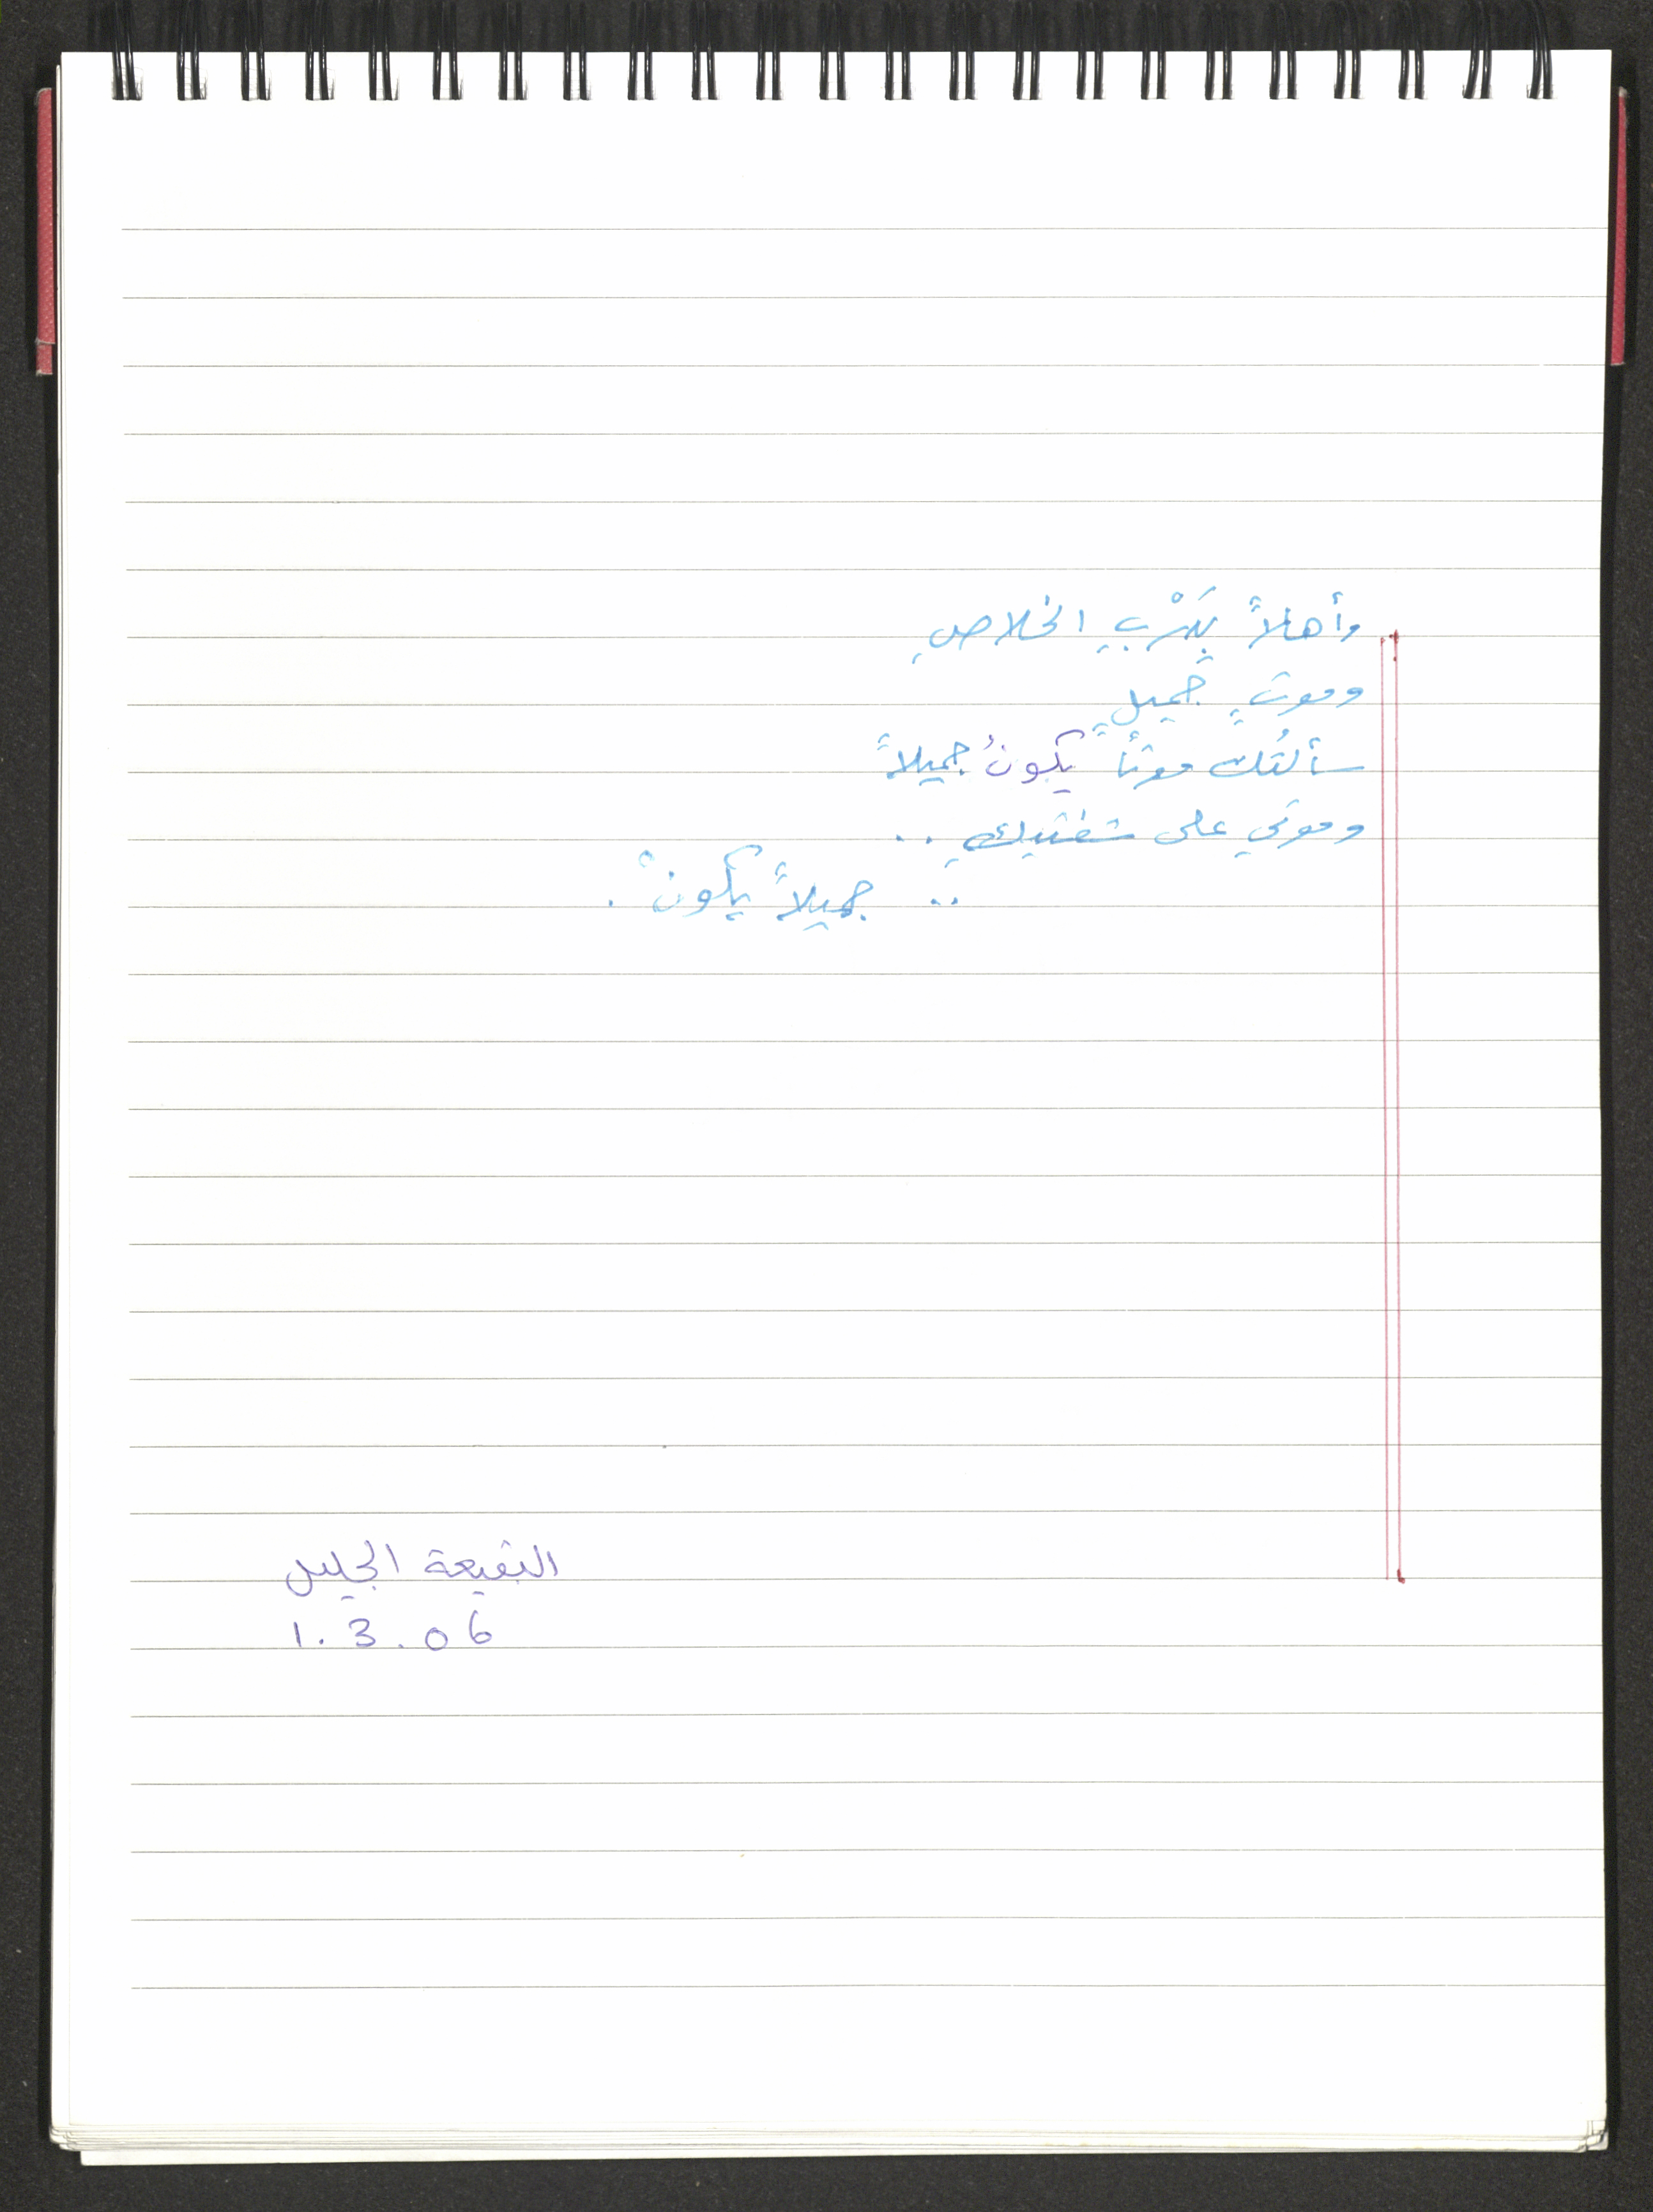 وأهلاً بِدَرْبِ الخلاصِ
وموتٍ جميلٍ
سألتُك موتاً يكونُ جميلاً
وموتي على شفتيكِ ..
.. جميلاً يكونْ .
البقيعة الجليل
1.3.06